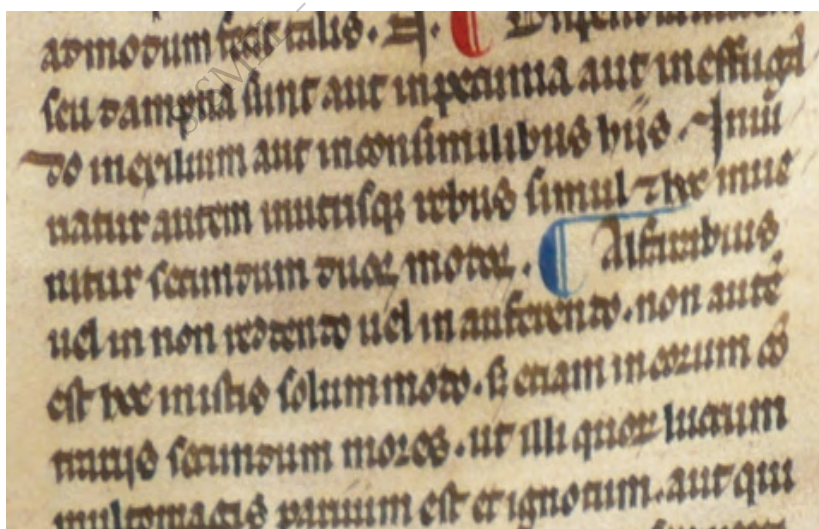 admodum sicut talis. ⁊.
seu dampna sunt aut in pecunia aut in effugā
do in exilium aut in consimilibus hiis. Inuē
natur autem in utrisque rebus simul ⁊ hec inue
nitur secundum duorum motor. ¶ Alfarabius
uel in non reddendo uel in auferendo. non autē
est hec in istis solummodo. sꝫ etiam in eorum cō
trariis secundum mores. ut illi quorum lucrum
multomagis paruum est et ignotum. aut qui